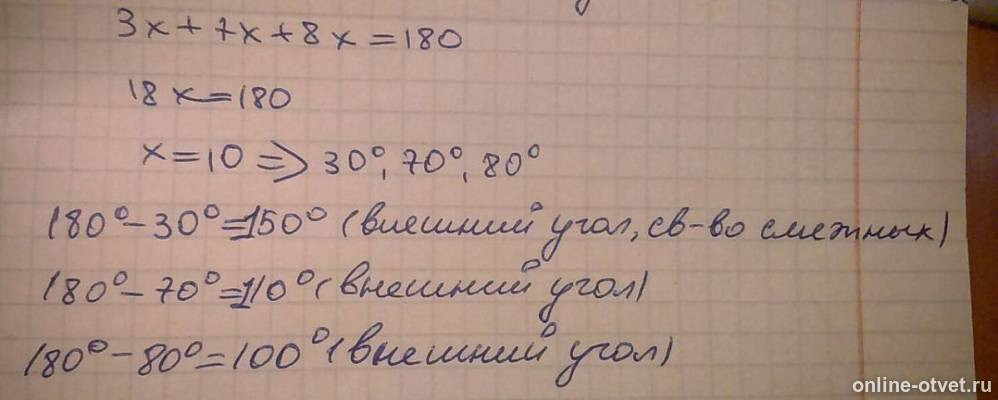 3x+7x+8x=180
18x=180
x=10 => 30°, 70°, 80°
180°-30°=150° (внешний угол, св-во смежных)
180°-70°=110° (внешний угол)
180°-80°=100° (внешний угол)
online-otvet.ru